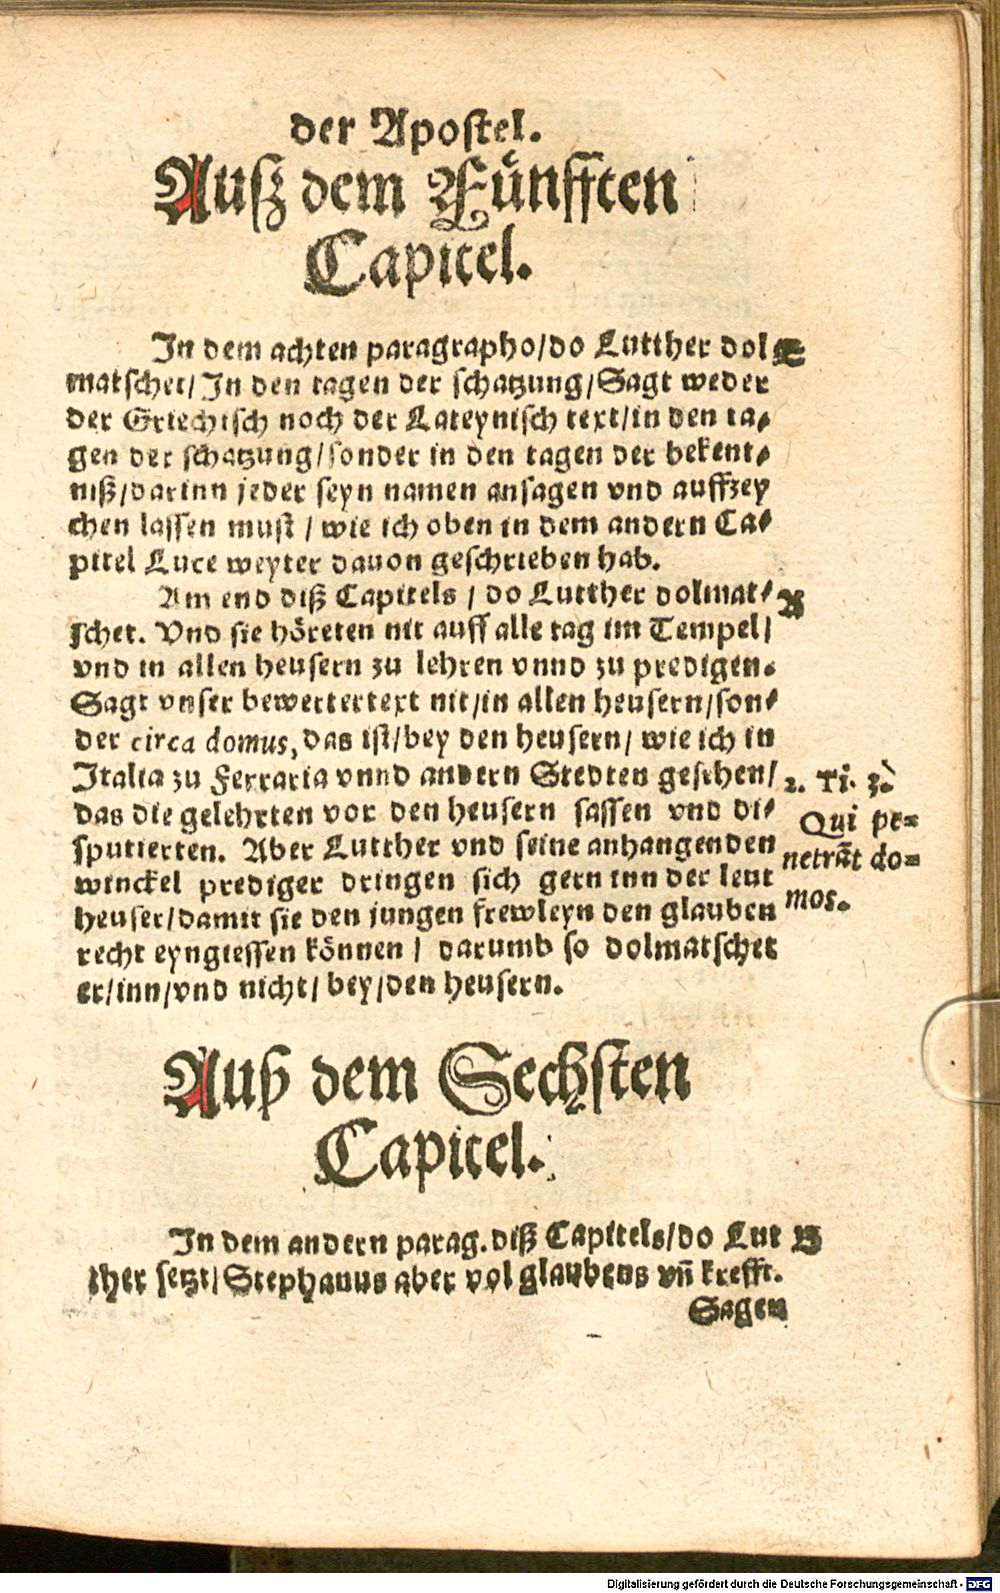 der Apostel.
Auß dem Fünfften
Capitel.
In dem achten paragrapho/do Lutther dol E
matschet/In den tagen der schatzung/Sagt weder
der Griechisch noch der Lateynisch text/in den ta⸗
gen der schatzung/sonder in den tagen der bekent⸗
niß/darinn jeder seyn namen ansagen vnd auffzey
chen lassen must/wie ich oben in dem andern Ca⸗
pitel Luce weyter dauon geschrieben hab.
Am end diß Capitels/do Lutther dolmat⸗
schet. Vnd sie höreten nit auff alle tag im Tempel/
vnd in allen heusern zu lehren vnnd zu predigen.
Sagt vnser bewertertext nit/in allen heusern/son⸗
der circa domus, das ist/bey den heusern/wie ich in
Italia zu Ferraria vnnd andern Stedten gesehen/
das die gelehrten vor den heusern sassen vnd di⸗
sputierten. Aber Lutther vnd seine anhangenden
winckel prediger dringen sich gern inn der leut
heuser/damit sie den jungen frewleyn den glauben
recht eyngiessen können/darumb so dolmatschet
er/inn/vnd nicht/bey/den heusern.
2. Ti. 3.
Qui pe⸗
netrãt do⸗
mos.
Auß dem Sechsten
Capitel.
In dem andern parag. diß Capitels/do Lut B
ther setzt/Stephanus aber vol glaubens vñ krefft.
Sagen
Digitalisierung gefördert durch die Deutsche Forschungsgemeinschaft - DFG